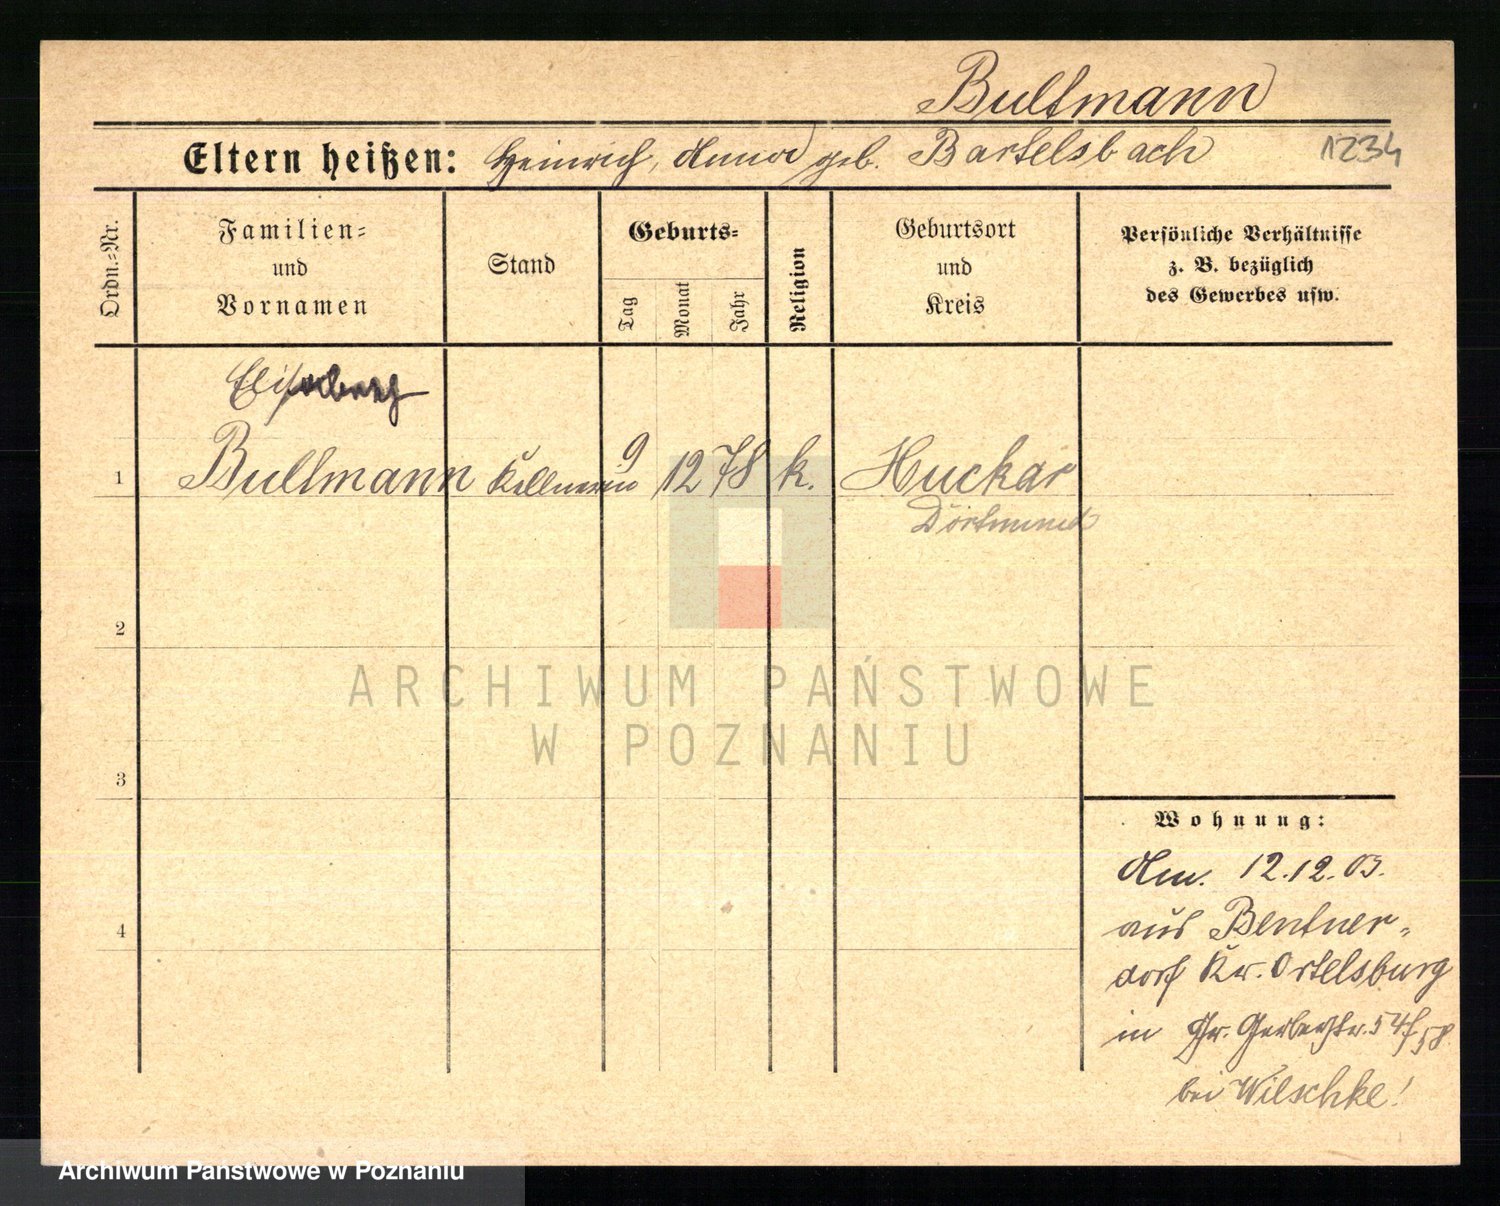 Bultmann
Eltern heißen: Heinrich, Anna geb. Bartelsbach
1234
Ordn.=Nr.
Familien=
und
Vornamen
Stand
Geburts=
Tag
Monat
Jahr
Religion
Geburtsort
und
Kreis
Persönliche Verhältnisse
z. B. bezüglich
des Gewerbes usw.
Elisabeth
1 Bultmann Kellnerin 9 12 78 k. Huckar
Dortmund
2
3
4
Wohnung:
Am. 12.12.03.
aus Bentner-
dorf Kr. Ortelsburg
in Gr. Gerberstr. 54/58
bei Wilschke!
ARCHIWUM PAŃSTWOWE
W POZNANIU
Archiwum Państwowe w Poznaniu